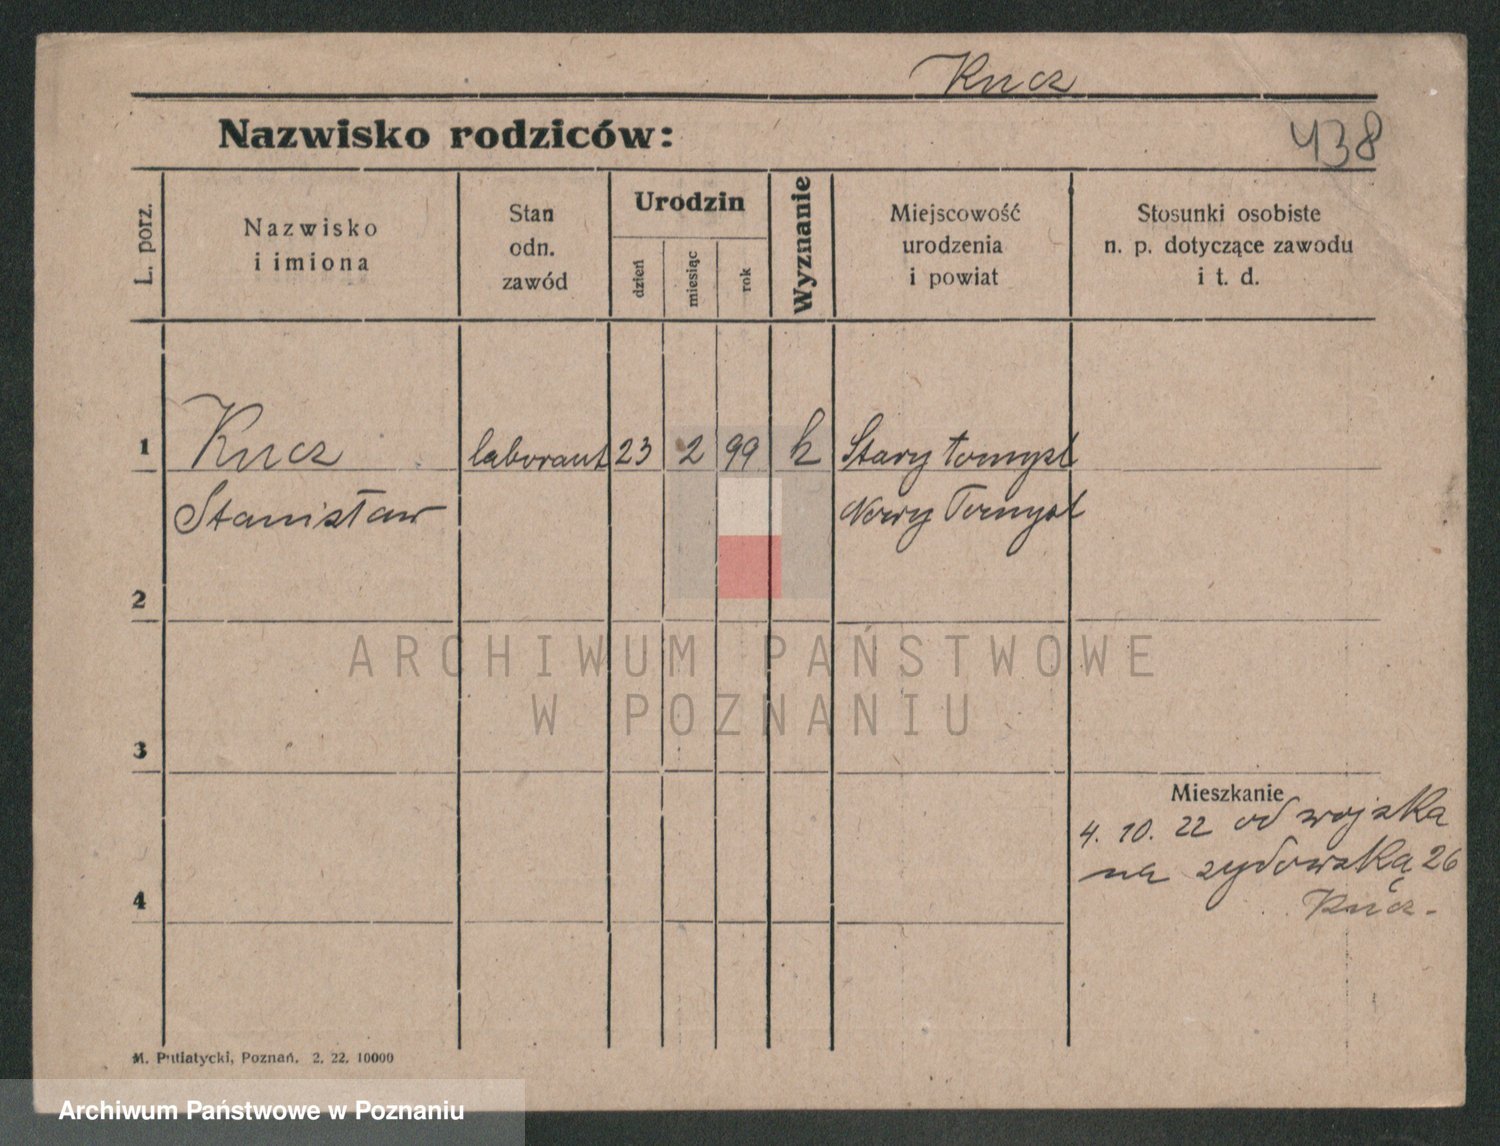 Kucz
Nazwisko rodziców:
438
L. porz.
Nazwisko
i imiona
Stan
odn.
zawód
Urodzin
dzień
miesiąc
rok
Wyznanie
Miejscowość
urodzenia
i powiat
Stosunki osobiste
n. p. dotyczące zawodu
i t. d.
1 Kucz laborant 23 2 99 k Stary tomysl
Stanisław Nowy Tomysl
2
ARCHIWUM PAŃSTWOWE
W POZNANIU
3
Mieszkanie
4. 10. 22 od wojska
na zydowską 26
Kucz.
4
M. Putiatycki, Poznań. 2. 22. 10000
Archiwum Państwowe w Poznaniu